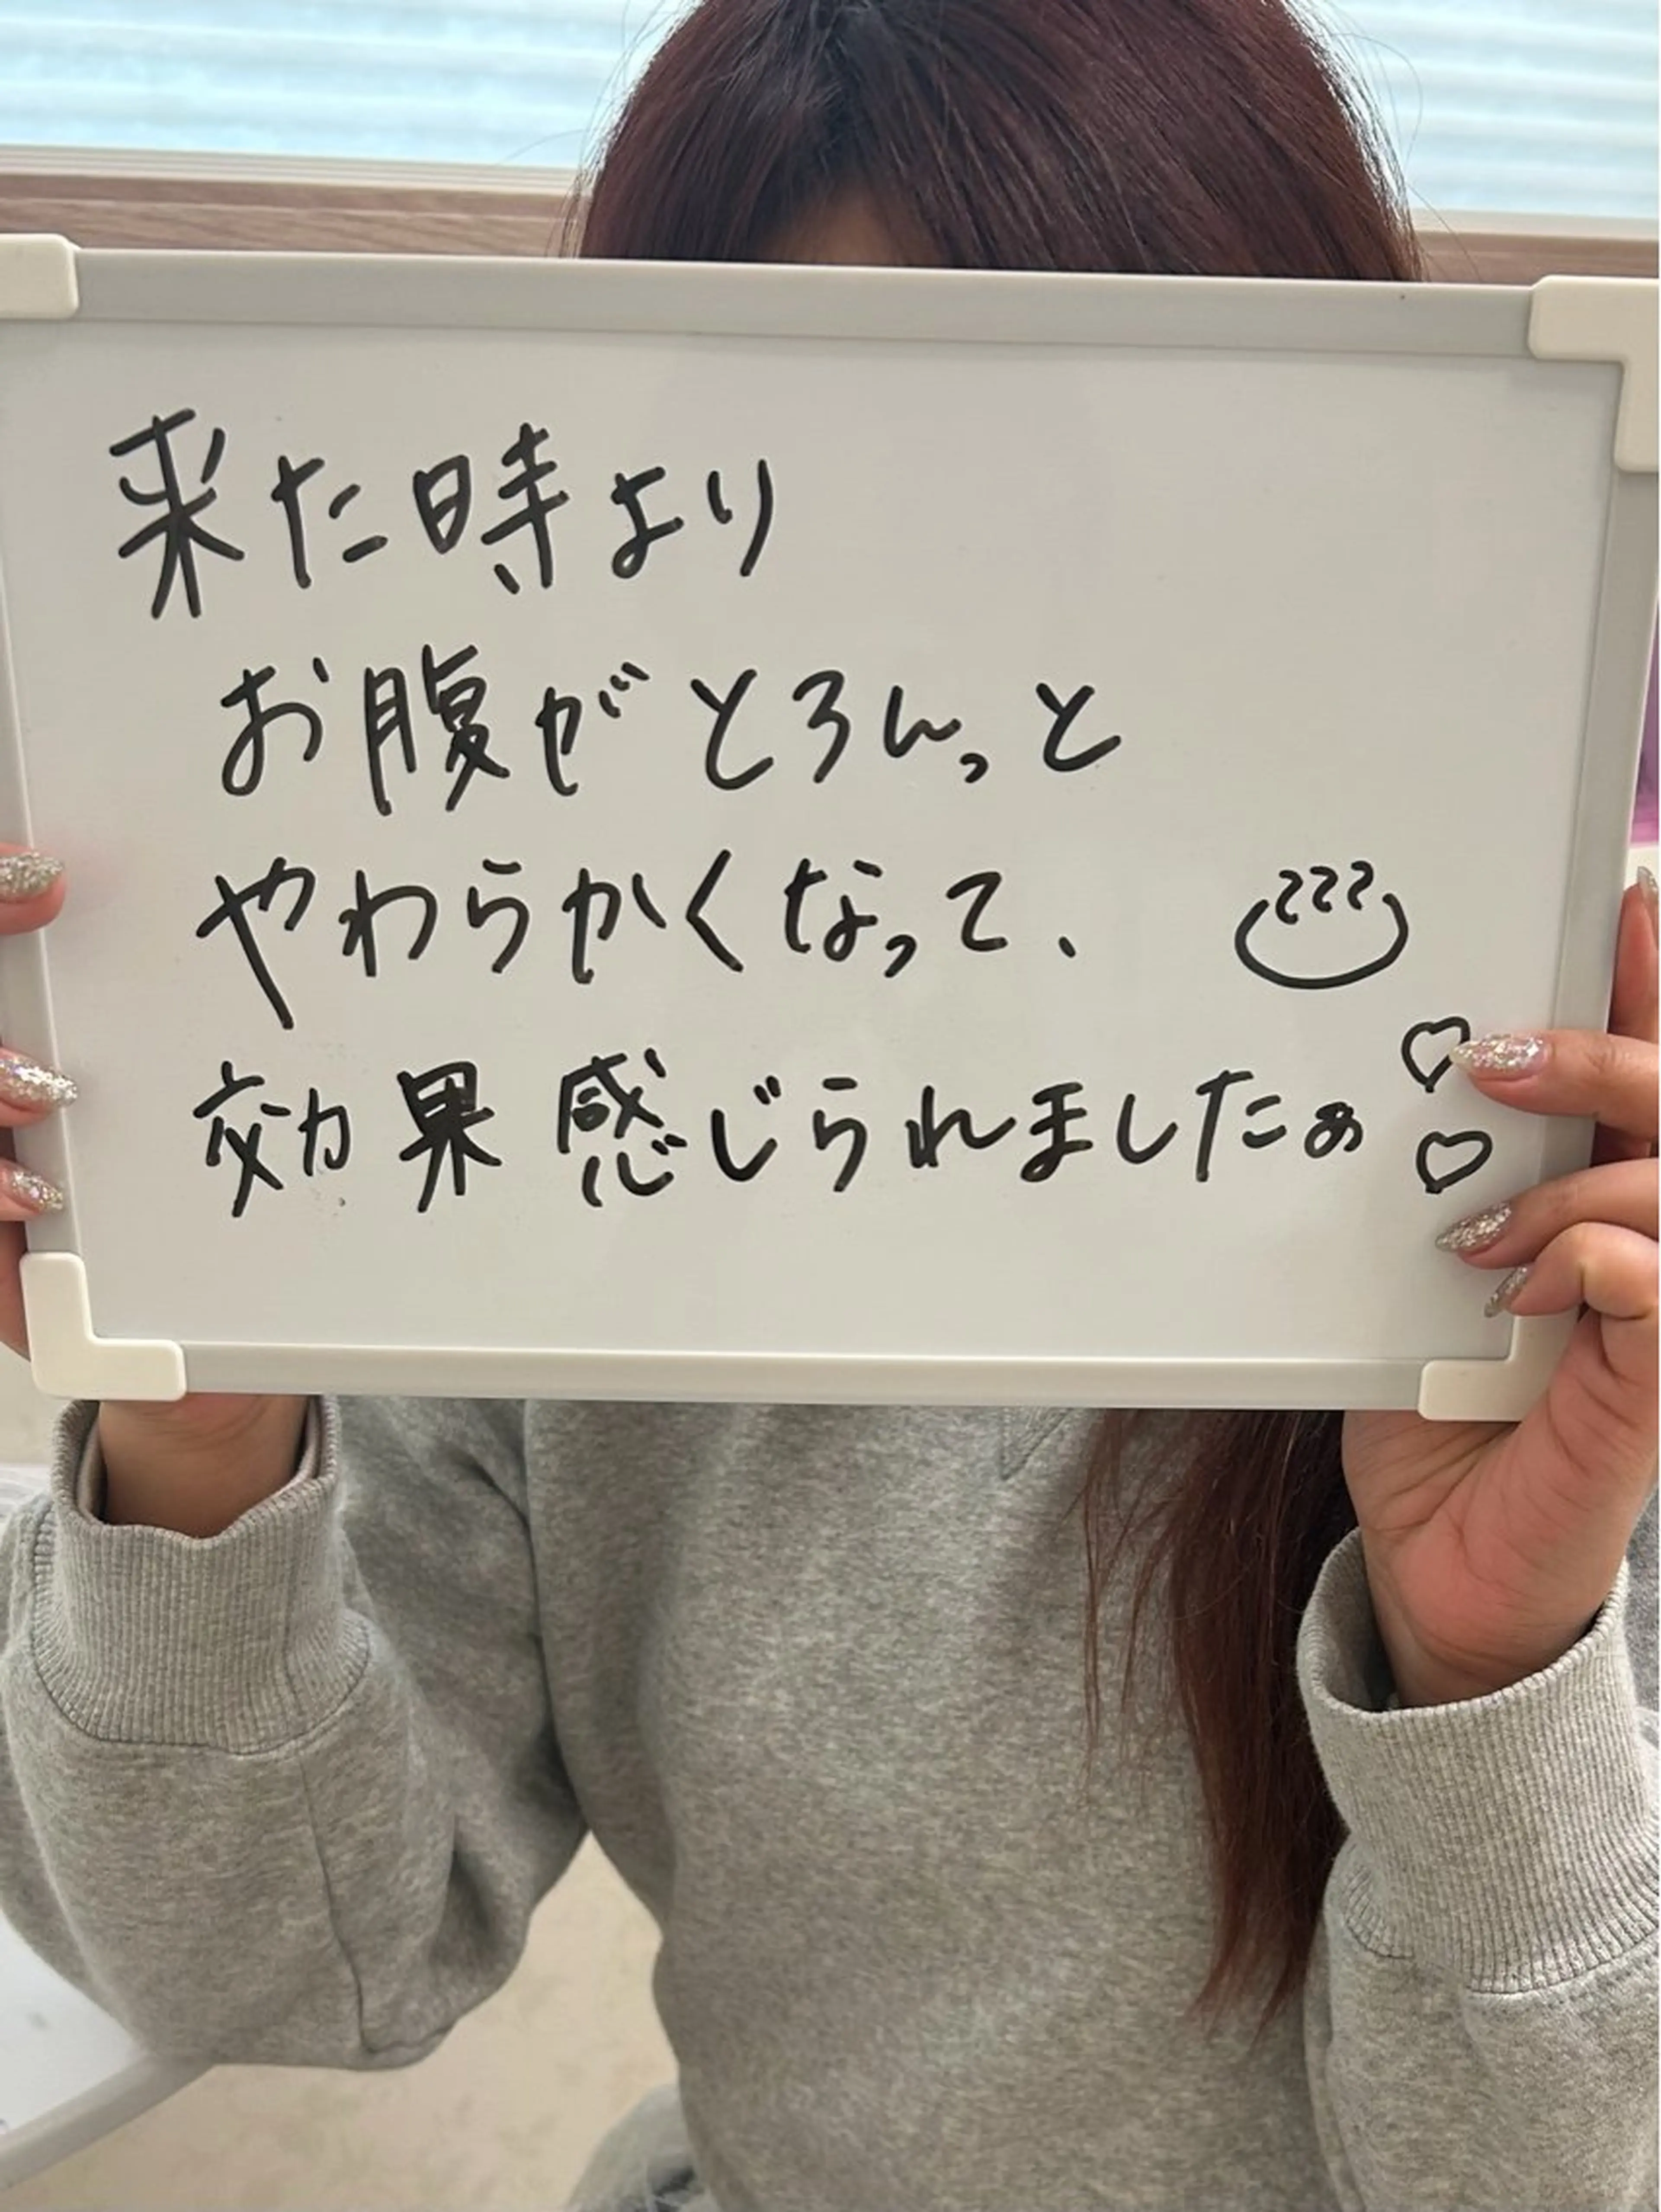 来た時より
お腹がとろんっと
やわらかくなって、
効果感じられましたぁ♡♡